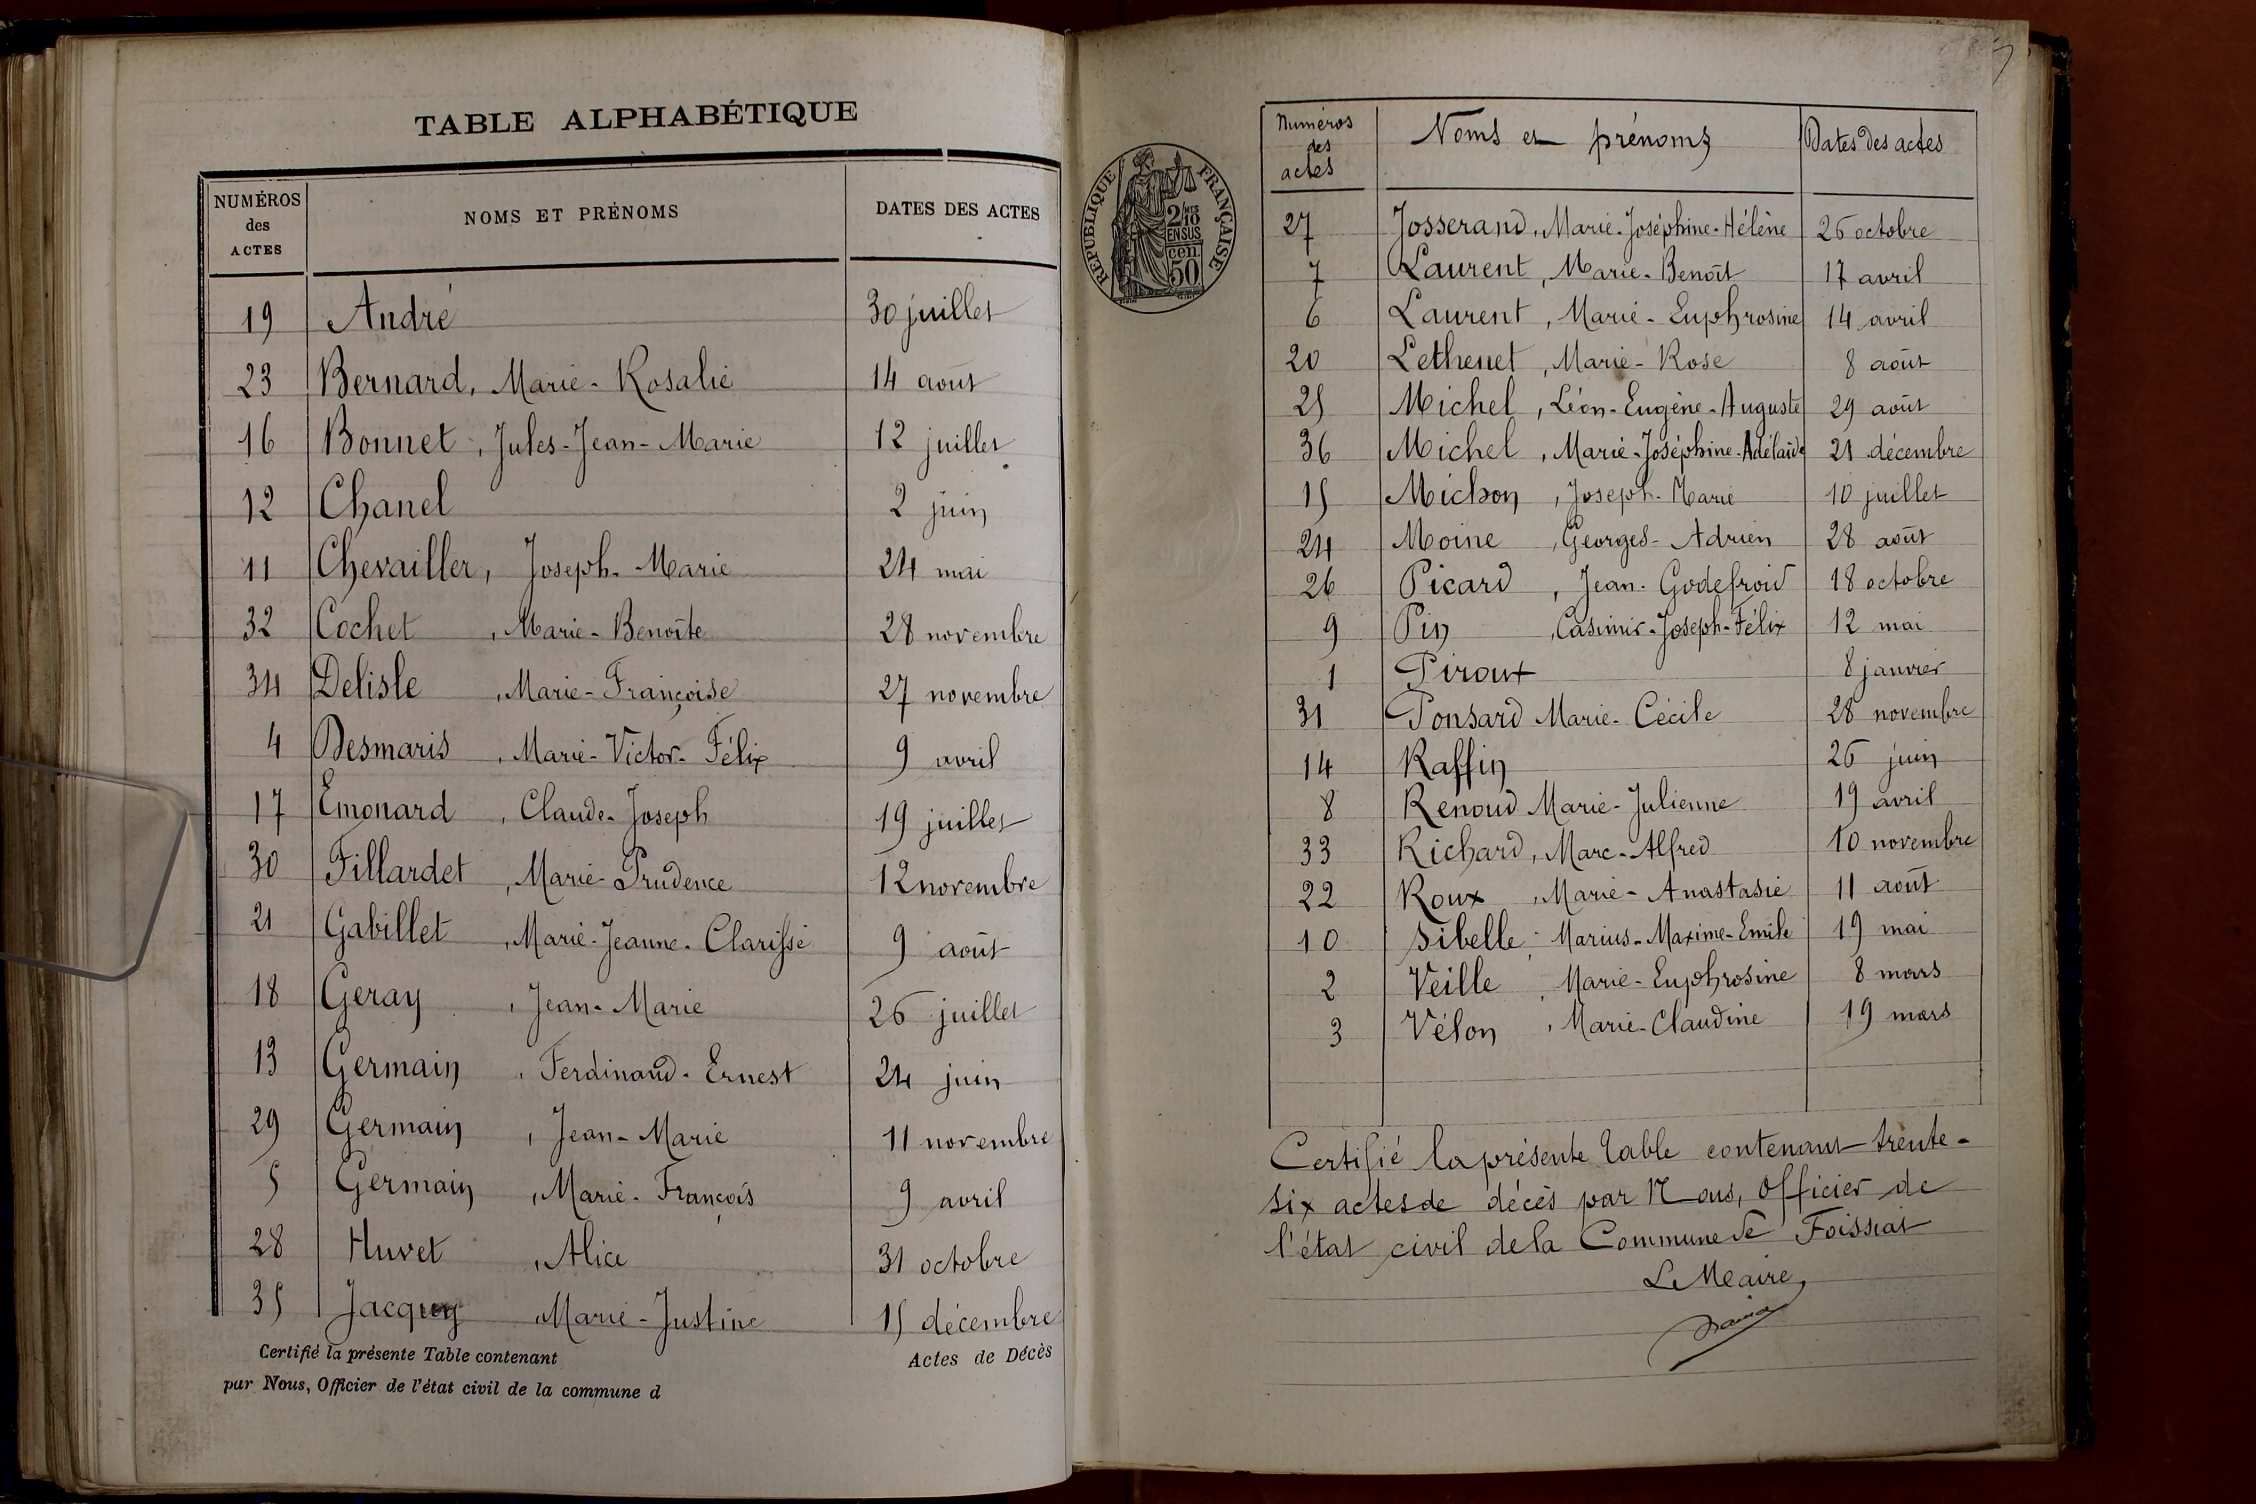 TABLE ALPHABÉTIQUE
NUMÉROS des ACTES NOMS ET PRÉNOMS DATES DES ACTES
19 André 30 juillet
23 Bernard, Marie-Rosalie 14 août
16 Bonnet, Jules-Jean-Marie 12 juillet
12 Chanel 2 juin
11 Chevailler, Joseph-Marie 24 mai
32 Cochet, Marie-Benoîte 28 novembre
34 Delisle, Marie-Françoise 27 novembre
4 Desmaris, Marie-Victor-Félix 9 avril
17 Emonard, Claude-Joseph 19 juillet
30 Fillardet, Marie-Prudence 12 novembre
21 Gabillet, Marie-Jeanne-Clarisse 9 août
18 Geray, Jean-Marie 26 juillet
13 Germain, Ferdinand-Ernest 24 juin
29 Germain, Jean-Marie 11 novembre
5 Germain, Marie-François 9 avril
28 Huvet, Alice 31 octobre
35 Jacquoy, Marie-Justine 15 décembre
Certifié la présente Table contenant Actes de Décès
par Nous, Officier de l'état civil de la commune d
RÉPUBLIQUE FRANÇAISE
2/10 EN SUS
50 cen.
Numéros des actes Noms et prénoms Dates des actes
27 Josserand, Marie-Joséphine-Hélène 26 octobre
7 Laurent, Marie-Benoît 17 avril
6 Laurent, Marie-Euphrosine 14 avril
20 Lethenet, Marie-Rose 8 août
25 Michel, Léon-Eugène-Auguste 29 août
36 Michel, Marie-Joséphine-Adélaïde 21 décembre
15 Michon, Joseph-Marie 10 juillet
24 Moine, Georges-Adrien 28 août
26 Picard, Jean-Godefroid 18 octobre
9 Pin, Casimir-Joseph-Félix 12 mai
1 Piroux 8 janvier
31 Ponsard Marie-Cécile 28 novembre
14 Raffin 26 juin
8 Renoud Marie-Julienne 19 avril
33 Richard, Marc-Alfred 10 novembre
22 Roux, Marie-Anastasie 11 août
10 Sibelle, Marius-Maxime-Emile 19 mai
2 Veille, Marie-Euphrosine 8 mars
3 Vélon, Marie-Claudine 19 mars
Certifié la présente table contenant trente-
six actes de décès par Nous, Officier de
l'état civil de la Commune de Foissiat
Le Maire,